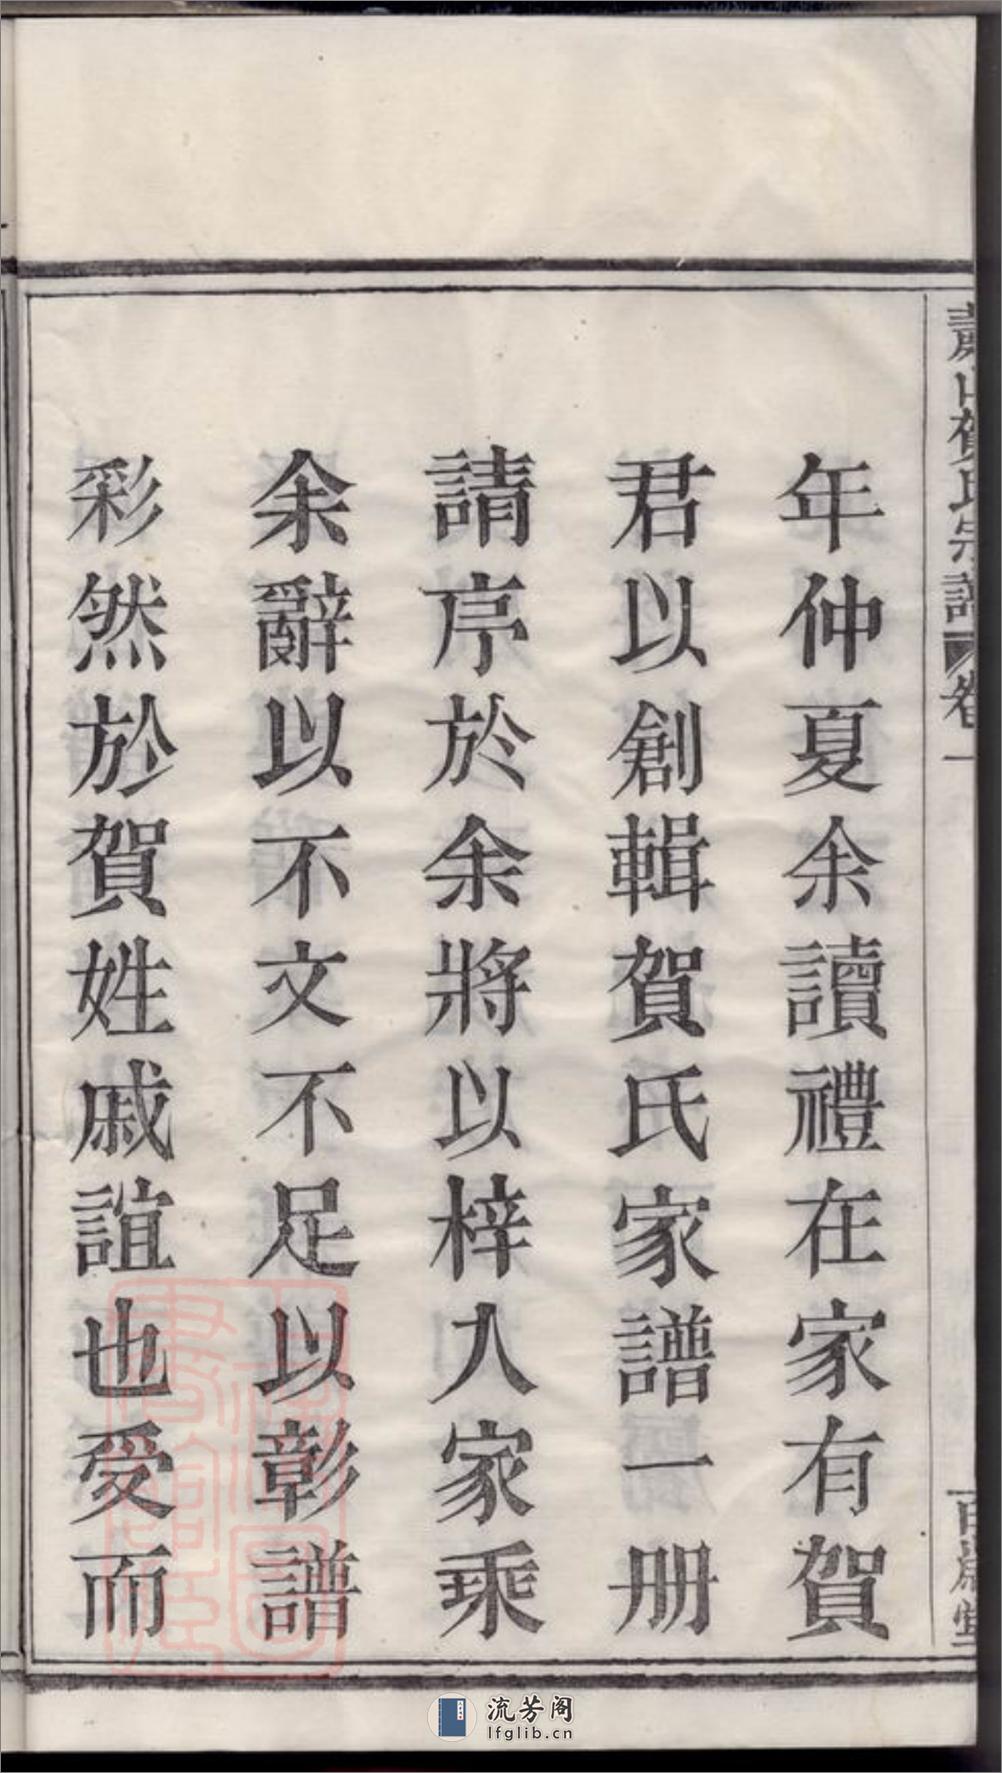 蕭山賀氏宗譜 卷一
年仲夏余讀禮在家有賀
君以創輯賀氏家譜一册
請序於余將以梓人家乘
余辭以不文不足以彰譜
彩然於賀姓戚誼也受而
流芳阁
lfglib.cn